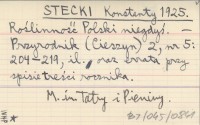 STECKI Konstanty 1925.
Roślinność Polski niegdyś. —
Przyrodnik (Cieszyn) 2, nr 5:
204-219, il. oraz errata przy
spisie treści rocznika.
M. in. Tatry i Pieniny.